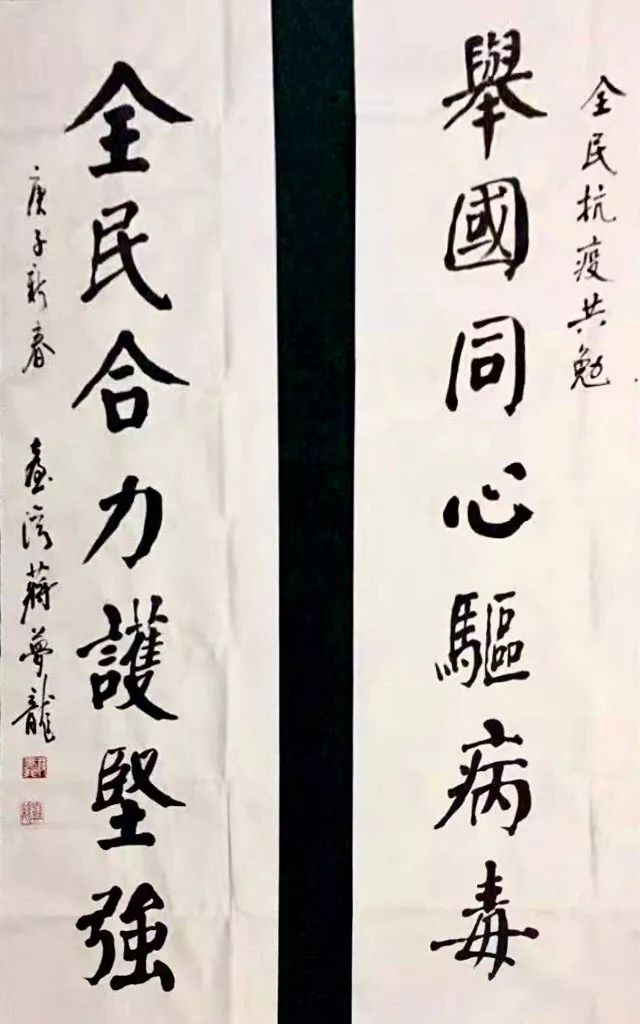 全民抗疫共勉
舉國同心驅病毒
全民合力護堅強
庚子新春 臺灣蔣夢龍